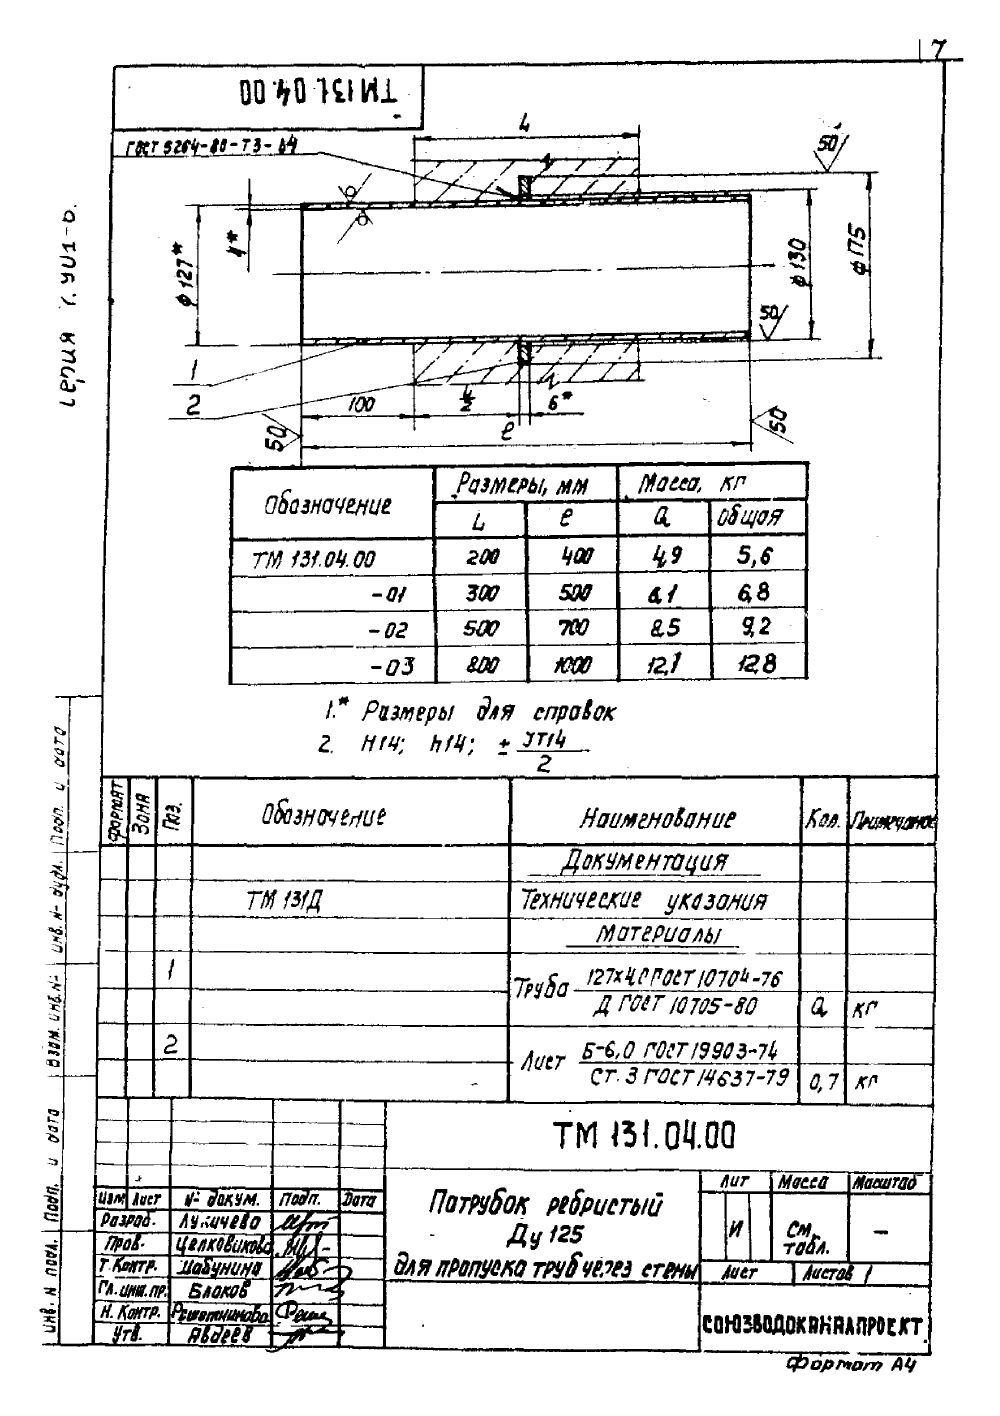 7
ТМ 131.04.00
ГОСТ 5264-80-Т3-
L
50
4*
ф 127*
ф 130
ф 175
50
1
2
100
L/2
6*
50
ℓ
50
Серия
Обозначение
Размеры, мм
Масса, кг
L
ℓ
Q
Общая
ТМ 131.04.00 200 400 4,9 5,6
-01 300 500 6,1 6,8
-02 500 700 8,5 9,2
-03 800 1000 12,1 12,8
1.* Размеры для справок
2. H14; h14; ± JT14/2
Формат Зона Поз. Обозначение Наименование Кол. Примечание
Документация
ТМ 131Д Технические указания
Материалы
1 Труба 127х4,0 ГОСТ 10704-76
Д ГОСТ 10705-80 Q кг
2 Лист Б-6,0 ГОСТ 19903-74
Ст. 3 ГОСТ 14637-79 0,7 кг
ТМ 131.04.00
Изм Лист № докум. Подп. Дата
Разраб. Лукичева
Пров. Целковикова
Т. Контр. Шабунина
Гл. инж. пр. Блоков
Н. Контр. Решетникова
Утв. Авдеев
Патрубок ребристый
Ду 125
для пропуска труб через стены
Лит Масса Масштаб
И См. табл. —
Лист Листов 1
СОЮЗВОДОКАНАЛПРОЕКТ
Формат А4
Инв. № подл. Подп. и дата Взам. инв. № Инв. № дубл. Подп. и дата